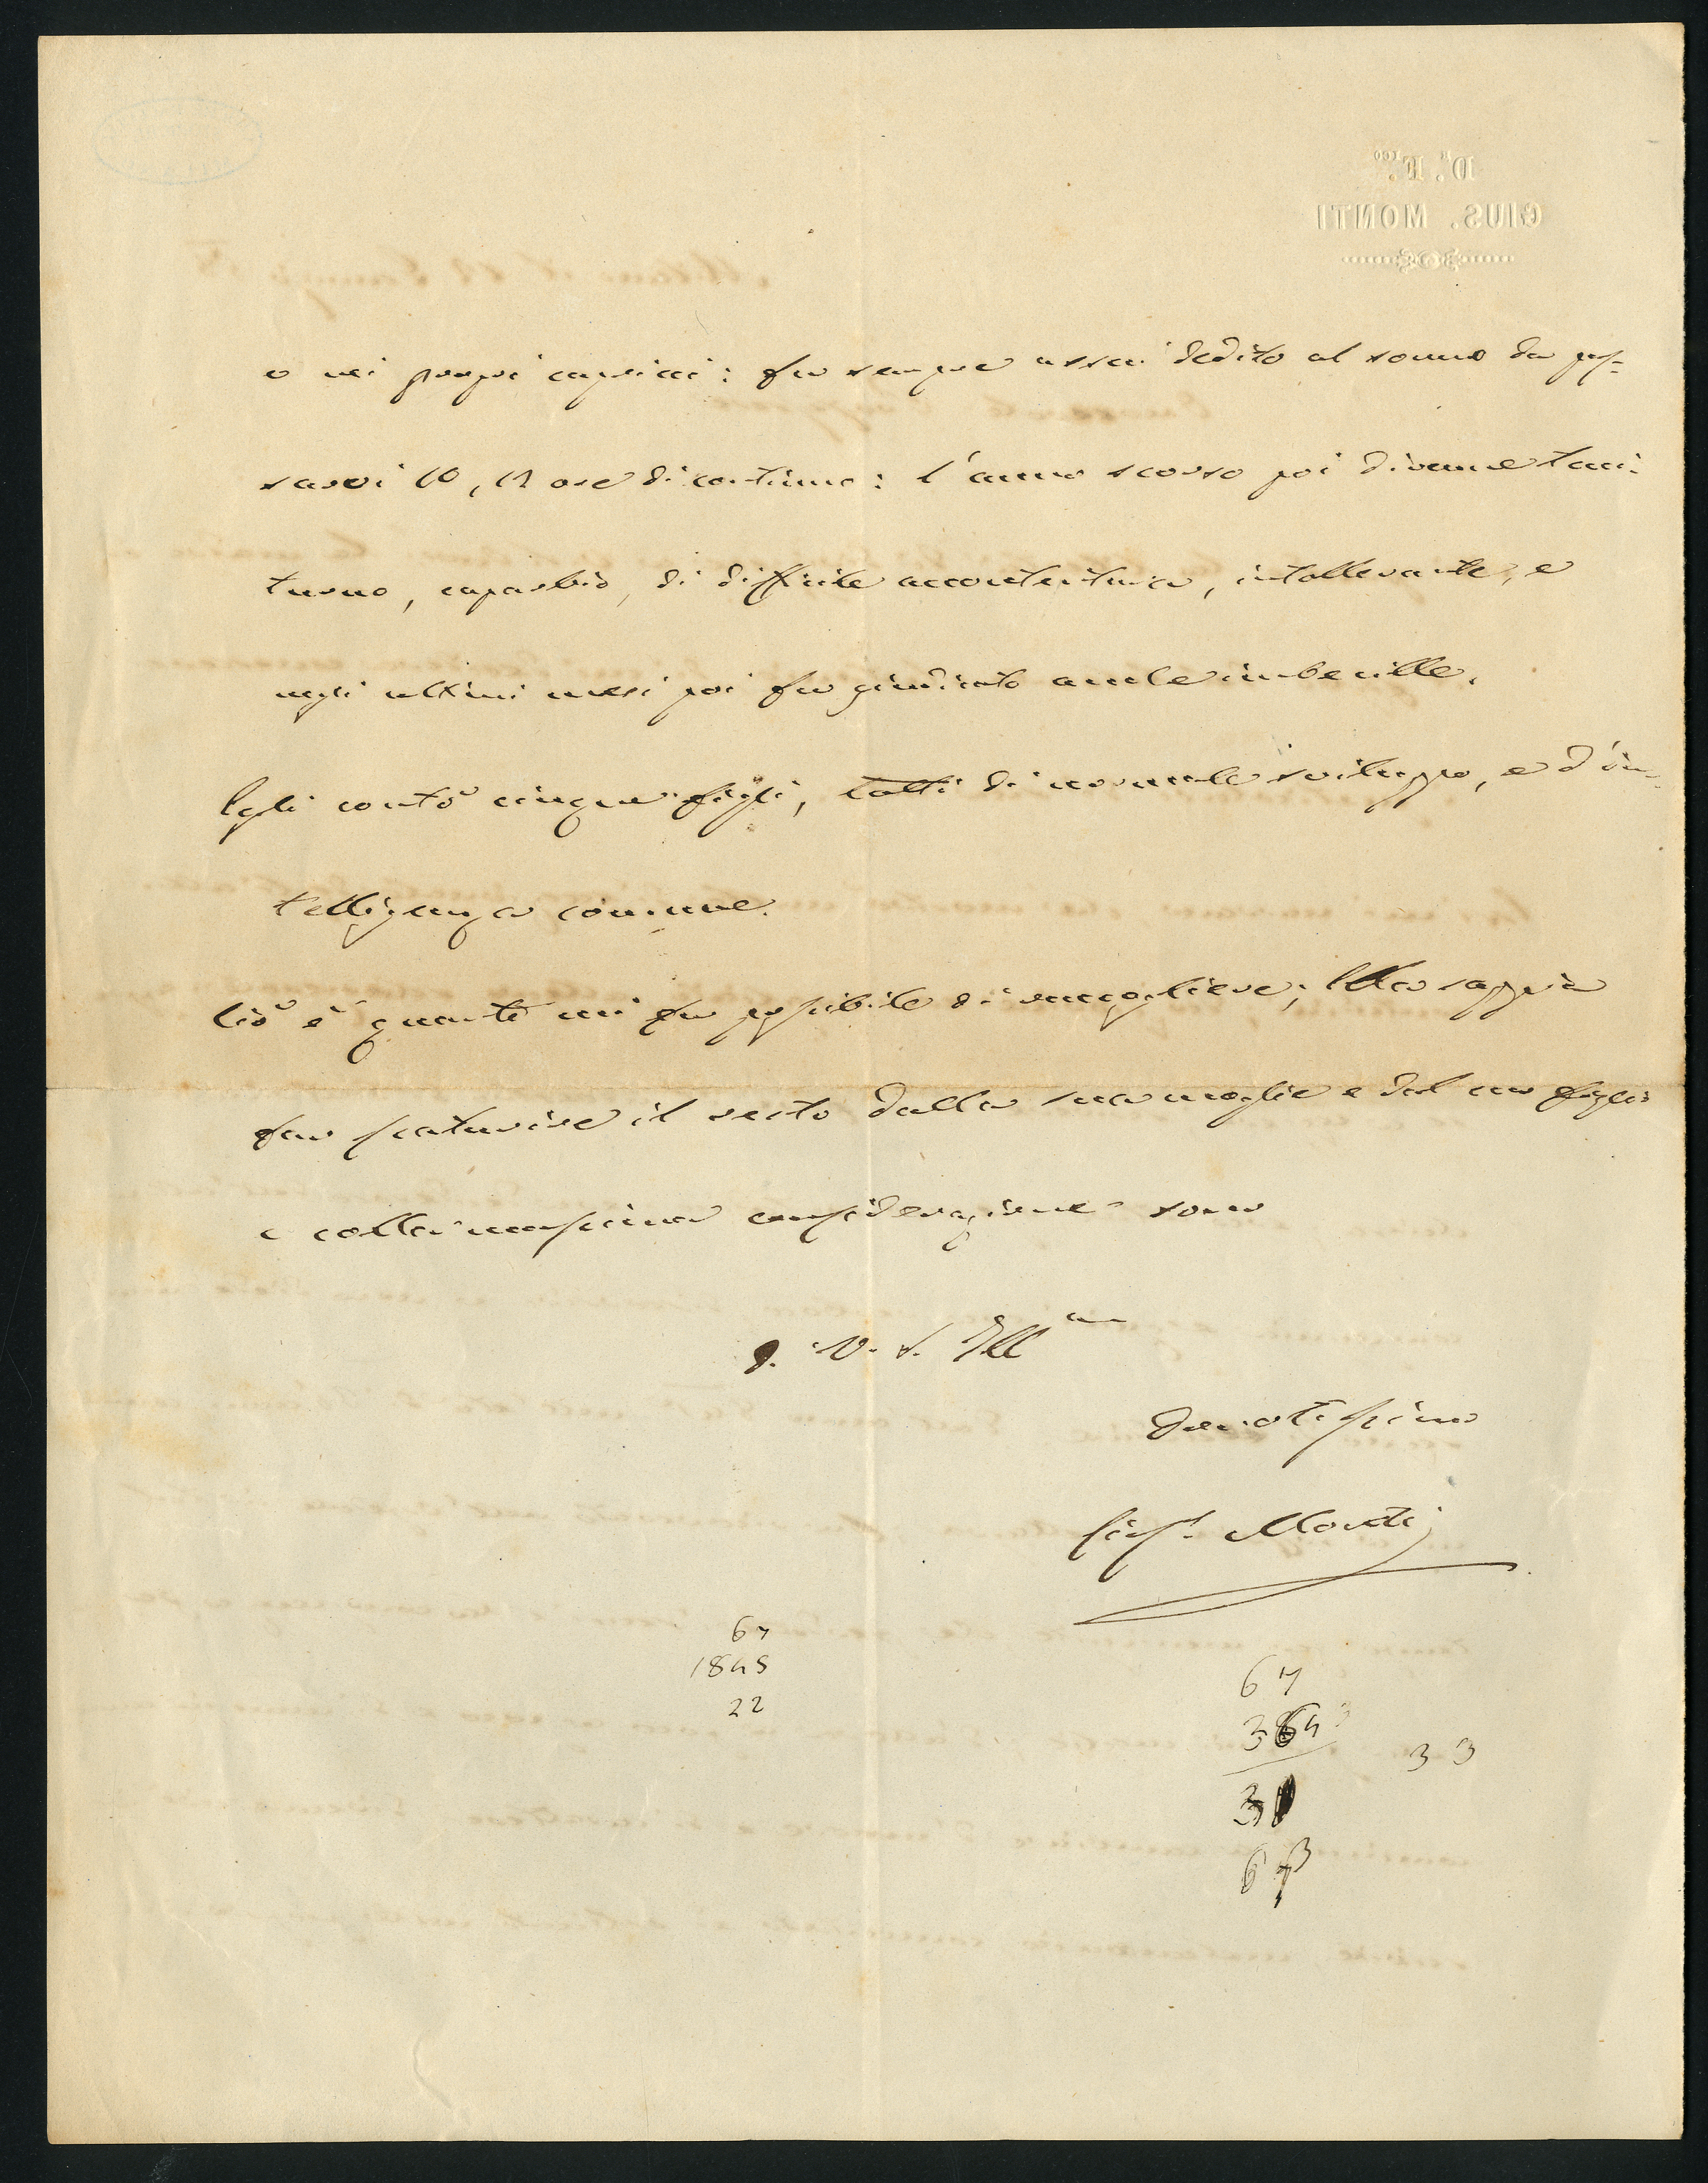 D.R F.ICO
GIUS. MONTI
o nei proprj capricci: fu sempre assai dedito al sonno da pas-
sarvi 10, 12 ore di continuo: l'anno scorso poi divenne taci-
turno, caparbio, di difficile accontentura, intollerante, e
negli ultimi mesi poi fu giudicato anche imbecille.
Egli contò cinque figli, tutti di normale sviluppo, e d'in-
telligenza comune.
Ciò è quanto mi fu possibile di raccogliere; Ella sappia
far scaturire il resto dalla sua moglie e dal suo figlio
e colla massima considerazione sono
D. V. S. Ill.ma
Devotissimo
Gius. Monti
67
1845
22
67
33
31